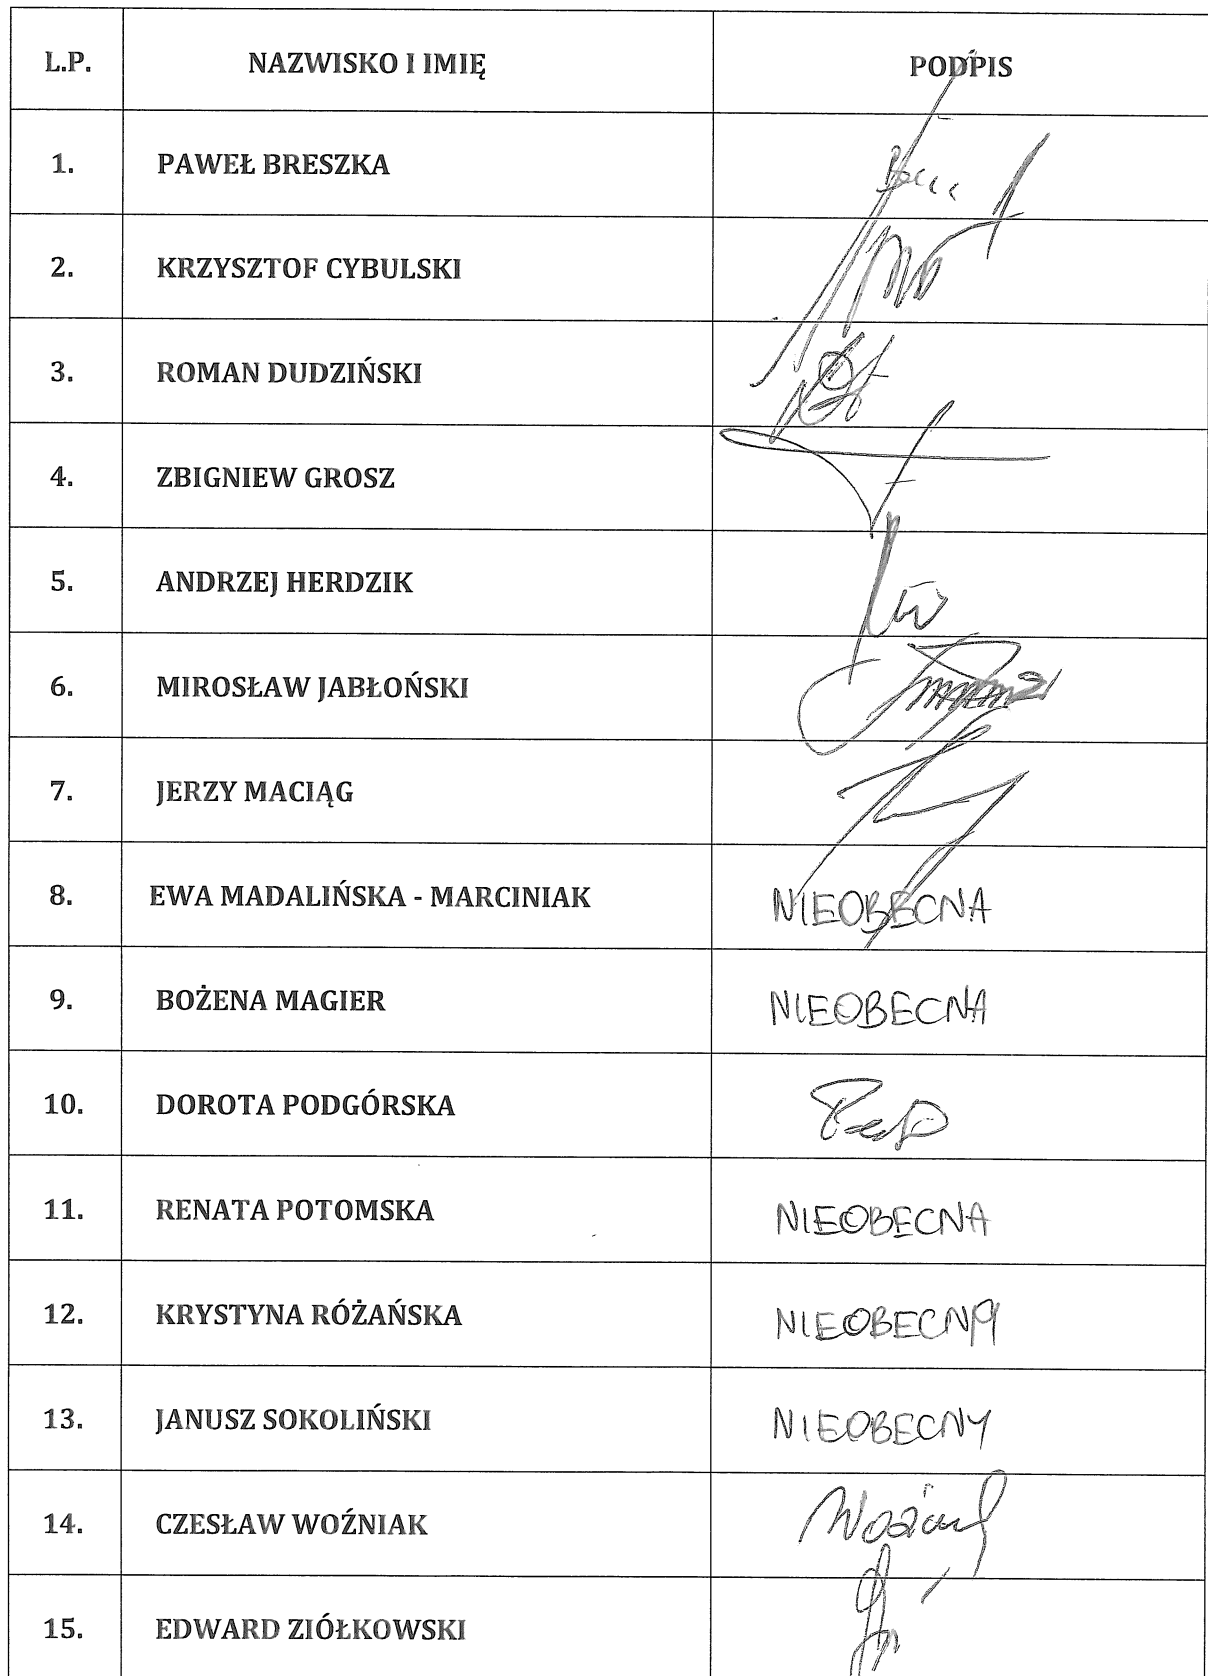 L.P. NAZWISKO I IMIĘ PODPIS
1. PAWEŁ BRESZKA
2. KRZYSZTOF CYBULSKI
3. ROMAN DUDZIŃSKI
4. ZBIGNIEW GROSZ
5. ANDRZEJ HERDZIK
6. MIROSŁAW JABŁOŃSKI
7. JERZY MACIĄG
8. EWA MADALIŃSKA - MARCINIAK NIEOBECNA
9. BOŻENA MAGIER NIEOBECNA
10. DOROTA PODGÓRSKA
11. RENATA POTOMSKA NIEOBECNA
12. KRYSTYNA RÓŻAŃSKA NIEOBECNA
13. JANUSZ SOKOLIŃSKI NIEOBECNY
14. CZESŁAW WOŹNIAK
15. EDWARD ZIÓŁKOWSKI